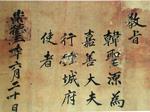 敎旨
韓聖源爲
嘉善大夫
行城府
使者
崇年六月二十日